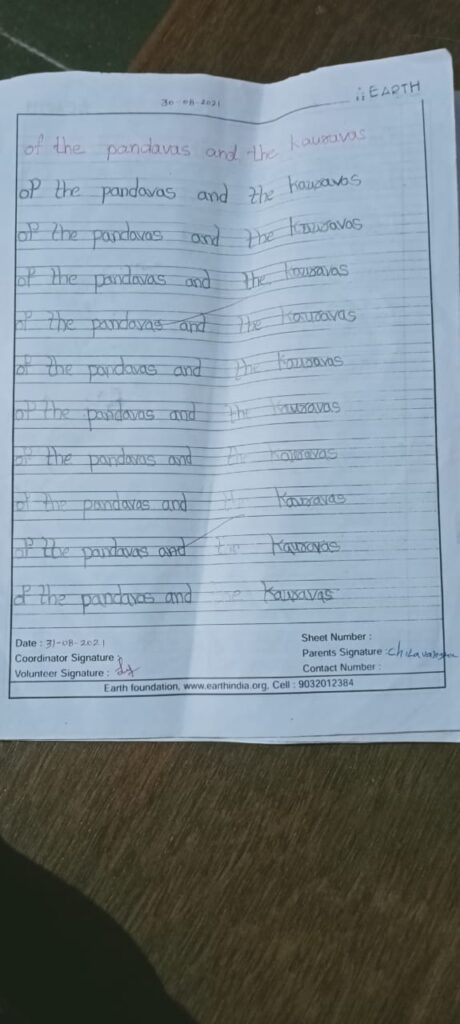 30-08-2021
EARTH
of the pandavas and the kauravas
of the pandavas and the kauravas
of the pandavas and the kauravas
of the pandavas and the kauravas
of the pandavas and the kauravas
of the pandavas and the kauravas
of the pandavas and the kauravas
of the pandavas and the kauravas
of the pandavas and the kauravas
of the pandavas and the kauravas
of the pandavas and the kauravas
Date : 31-08-2021 Sheet Number :
Coordinator Signature : Parents Signature :
Volunteer Signature : Contact Number :
Earth foundation, www.earthindia.org, Cell : 9032012384